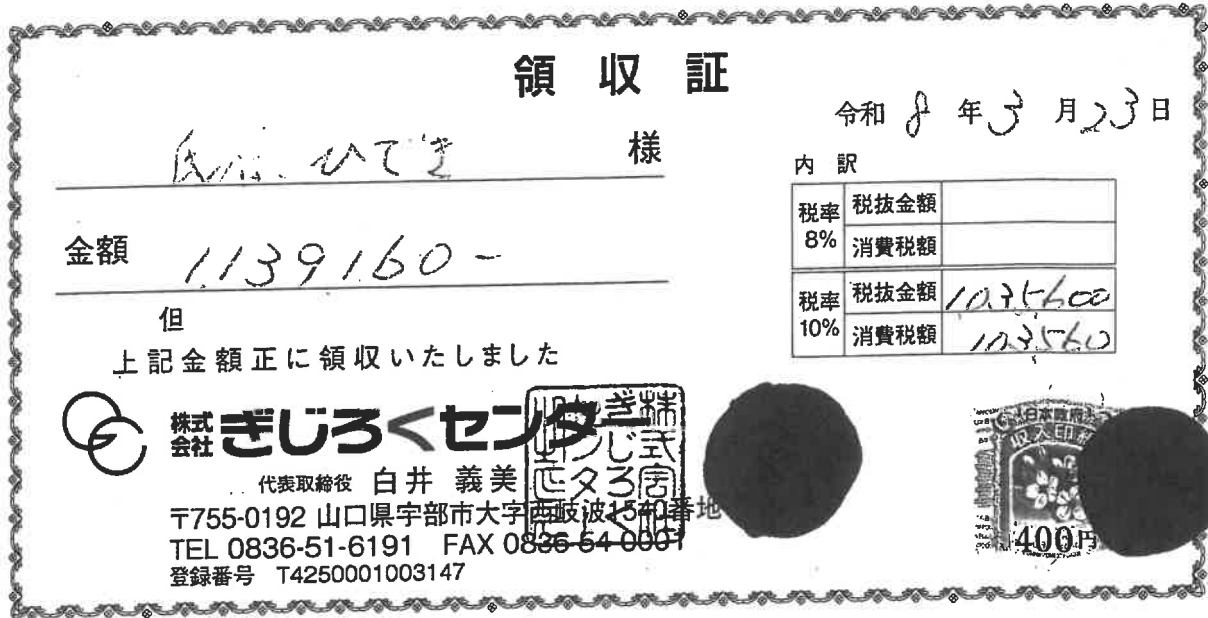 領収証
令和 8 年 3 月 23 日
ひでき 様
金額 1,139,160-
但
上記金額正に領収いたしました
内訳
税率 8% 税抜金額
消費税額
税率 10% 税抜金額 1,035,600
消費税額 103,560
株式会社 ぎじろくセンター
代表取締役 白井 義美
〒755-0192 山口県宇部市大字西岐波1540番地
TEL 0836-51-6191 FAX 0836-54-0001
登録番号 T4250001003147
株式会社ぎじろくセンター
日本政府
収入印紙
400円